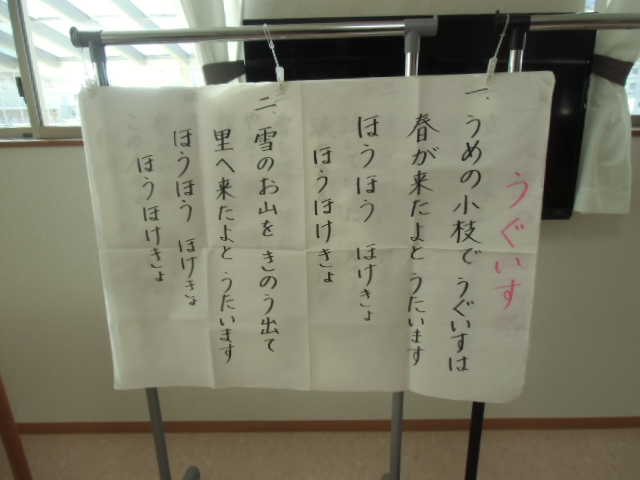 うぐいす
一、うめの小枝で うぐいすは
春が来たよと うたいます
ほうほう ほけきょ
ほうほけきょ
二、雪のお山を きのう出て
里へ来たよと うたいます
ほうほう ほけきょ
ほうほけきょ